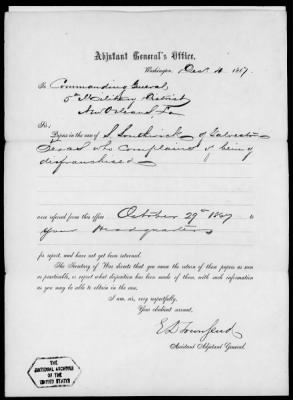 Adjutant General's Office,
Washington, Decr 4, 1867.
To Commanding General,
5th Military District
New Orleans, La
Sir:
Papers in the case of S. Southwick of Galveston
Texas who complains of being
disfranchised
were referred from this office October 29th 1867 to
your Headquarters
for report, and have not yet been returned.
The Secretary of War directs that you cause the return of these papers as soon
as practicable, or report what disposition has been made of them, with such information
as you may be able to obtain in the case.
I am, sir, very respectfully,
Your obedient servant,
E D Townsend
Assistant Adjutant General.
THE
NATIONAL ARCHIVES
OF THE
UNITED STATES